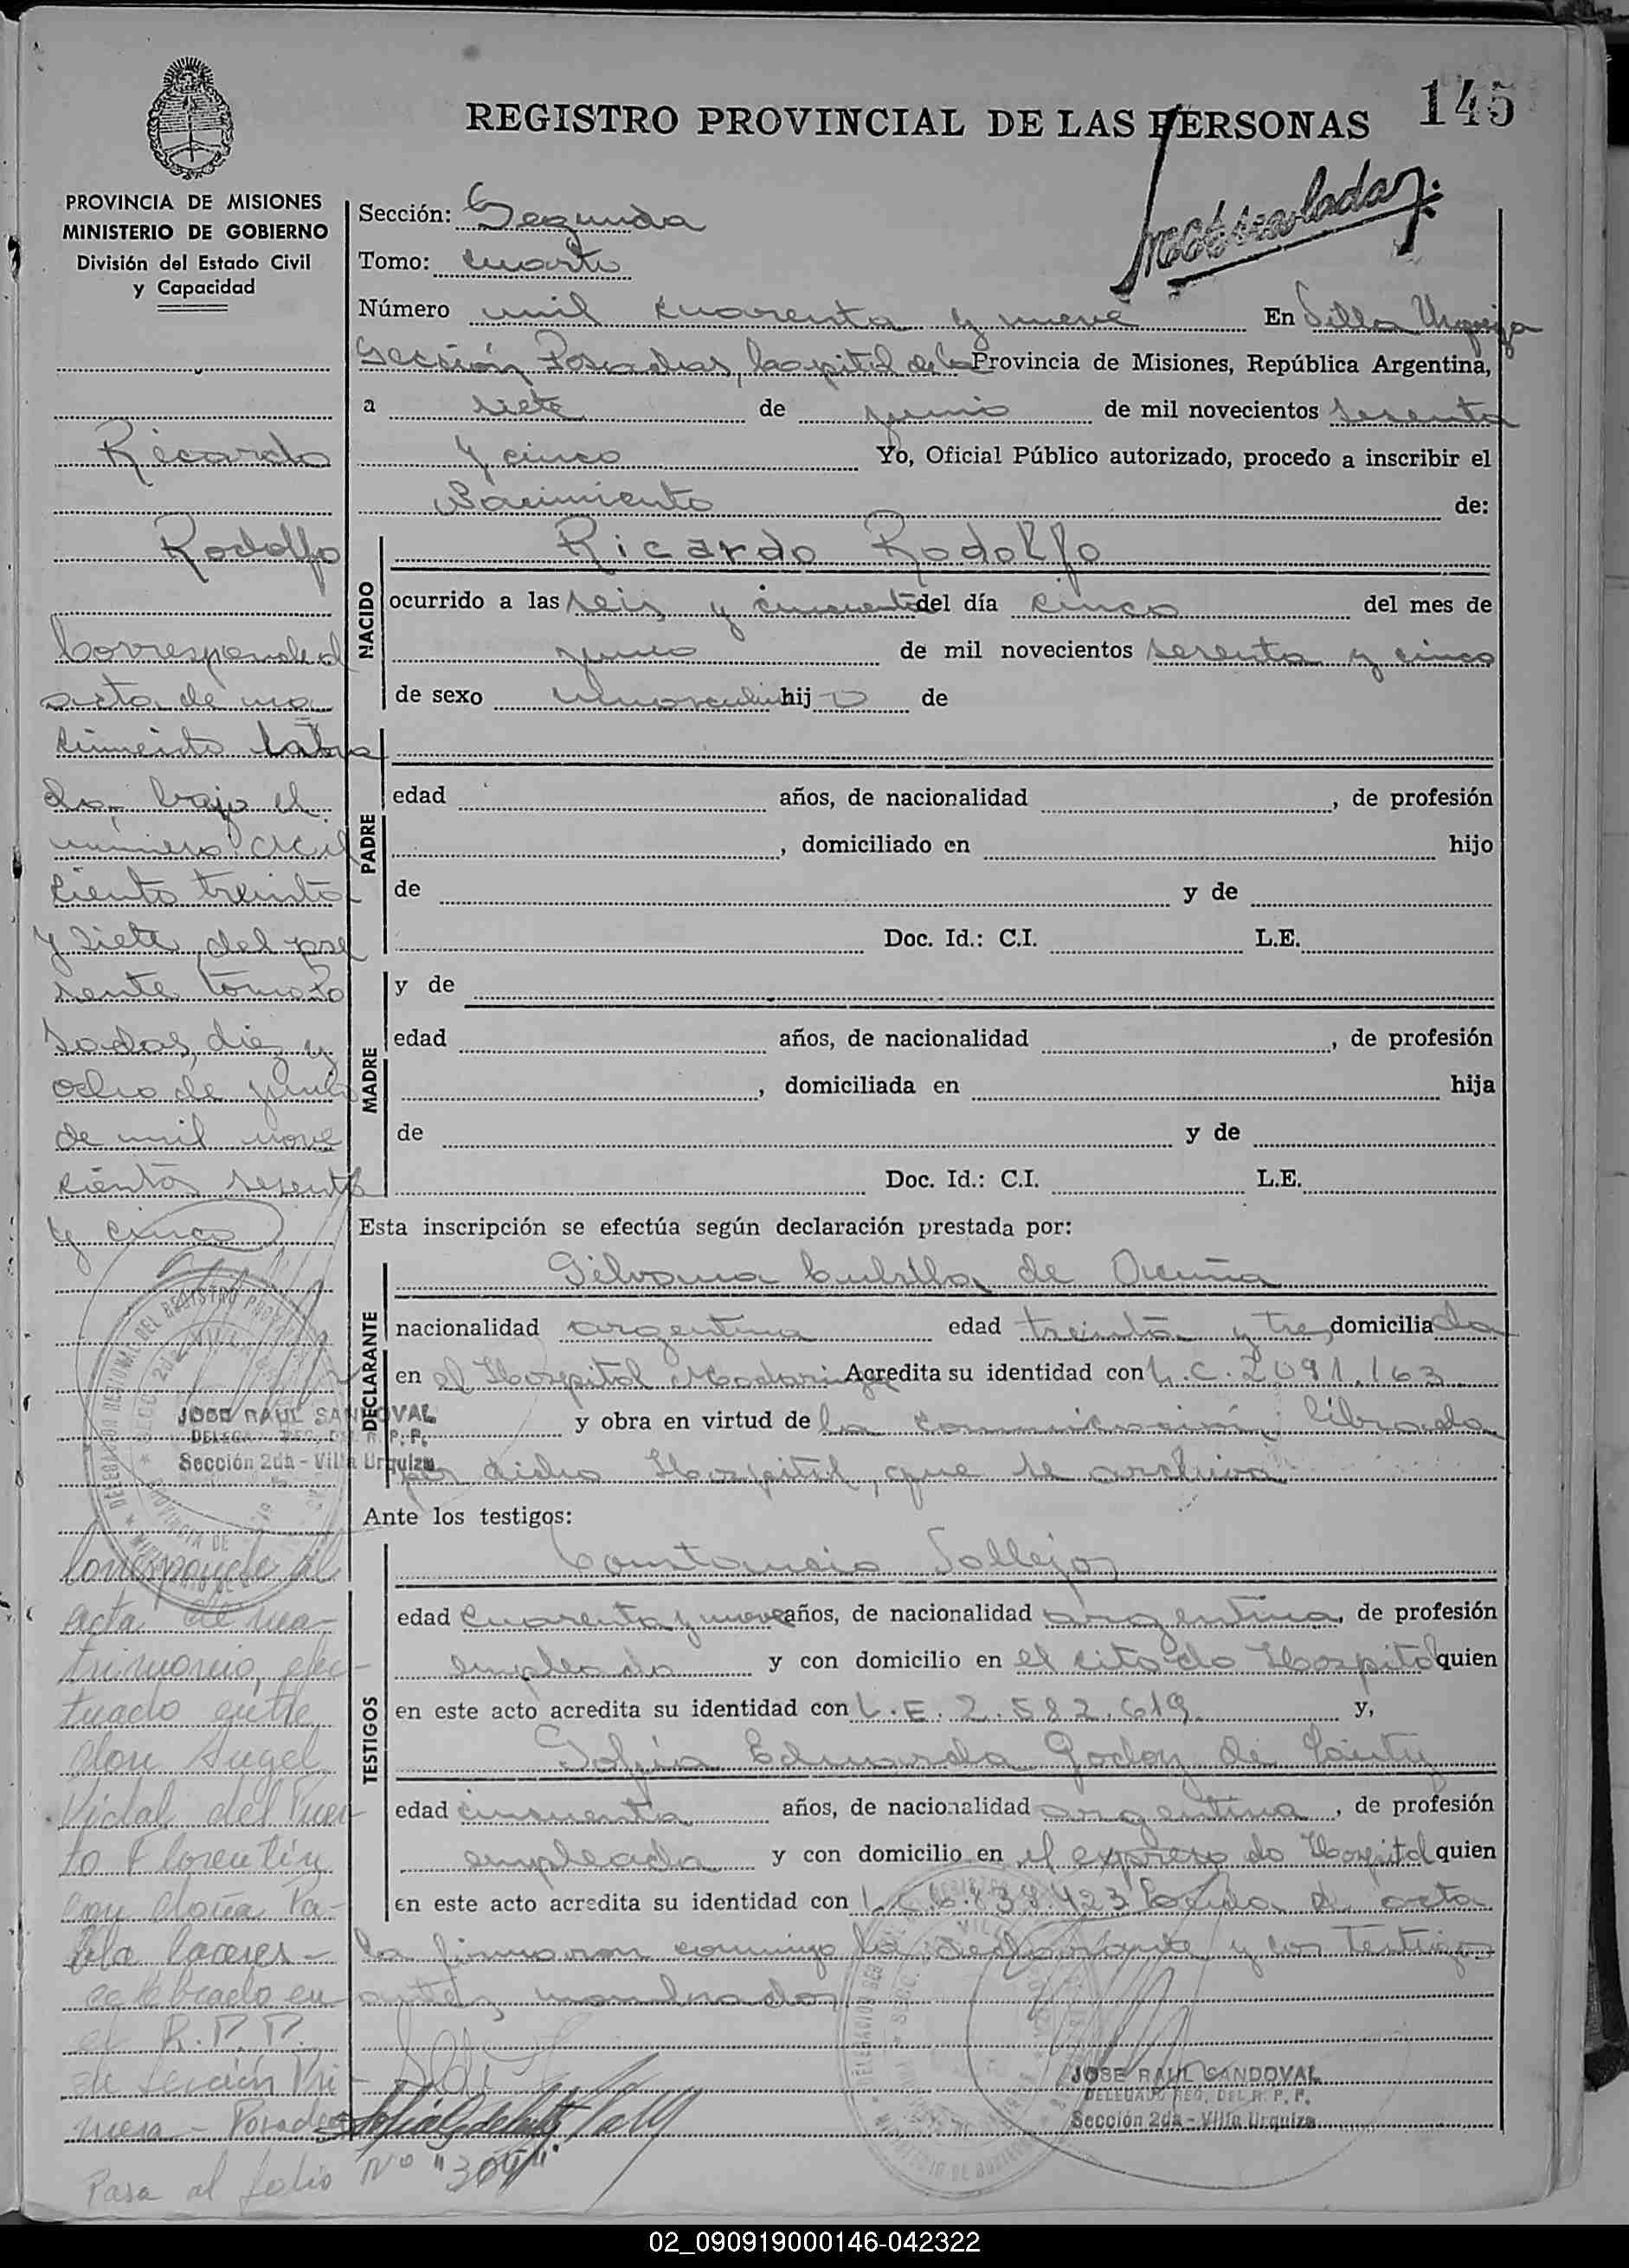 145
REGISTRO PROVINCIAL DE LAS PERSONAS
PROVINCIA DE MISIONES
MINISTERIO DE GOBIERNO
División del Estado Civil
y Capacidad
Sección: Segunda
Tomo: cuarto
Número mil cuarenta y nueve En Villa Urquiza
Sección Posadas, Capital de la Provincia de Misiones, República Argentina,
a siete de junio de mil novecientos sesenta
y cinco Yo, Oficial Público autorizado, procedo a inscribir el
Nacimiento de:
NACIDO
Ricardo Rodolfo
ocurrido a las seis y cincuenta del día cinco del mes de
junio de mil novecientos sesenta y cinco
de sexo masculino hijo de
PADRE
edad años, de nacionalidad , de profesión
, domiciliado en hijo
de y de
Doc. Id.: C.I. L.E.
MADRE
y de
edad años, de nacionalidad , de profesión
, domiciliada en hija
de y de
Doc. Id.: C.I. L.E.
Esta inscripción se efectúa según declaración prestada por:
DECLARANTE
Silvana de Acuña
nacionalidad argentina edad treinta y tres domiciliada
en el Hospital Madariaga Acredita su identidad con L.C. 2091.163
y obra en virtud de la comunicación librada
por dicho Hospital, que se archiva
Ante los testigos:
TESTIGOS
Constancio Vallejos
edad cuarenta y nueve años, de nacionalidad argentina, de profesión
empleado y con domicilio en el citado Hospital quien
en este acto acredita su identidad con L.E. 2.582.619 y,
Sofia Eduarda Godoy de
edad cincuenta años, de nacionalidad argentina, de profesión
empleada y con domicilio en el expresado Hospital quien
en este acto acredita su identidad con L.C. Leida el acta
la firmaron conmigo la declarante y los testigos
antes nombrados
JOSE RAUL SANDOVAL
DELEGADO REG. DEL R. P. P.
Sección 2da - Villa Urquiza
Ricardo
Rodolfo
Corresponde al
acta de na
cimiento labra
do bajo el
número mil
ciento treinta
y siete, del pre
sente tomo Po
sadas, diez y
ocho de junio
de mil nove
cientos sesenta
y cinco
JOSE RAUL SANDOVAL
DELEGADO REG. DEL R. P. P.
Sección 2da - Villa Urquiza
Corresponde al
acta de ma-
trimonio, efec-
tuado entre
don Angel
Vidal del Puer-
to Florentin
con doña Pa-
bla Caceres -
celebrado en
el R.P.P.
de Sección Pri
mera - Posadas
Pasa al folio Nº "304"
02_090919000146-042322